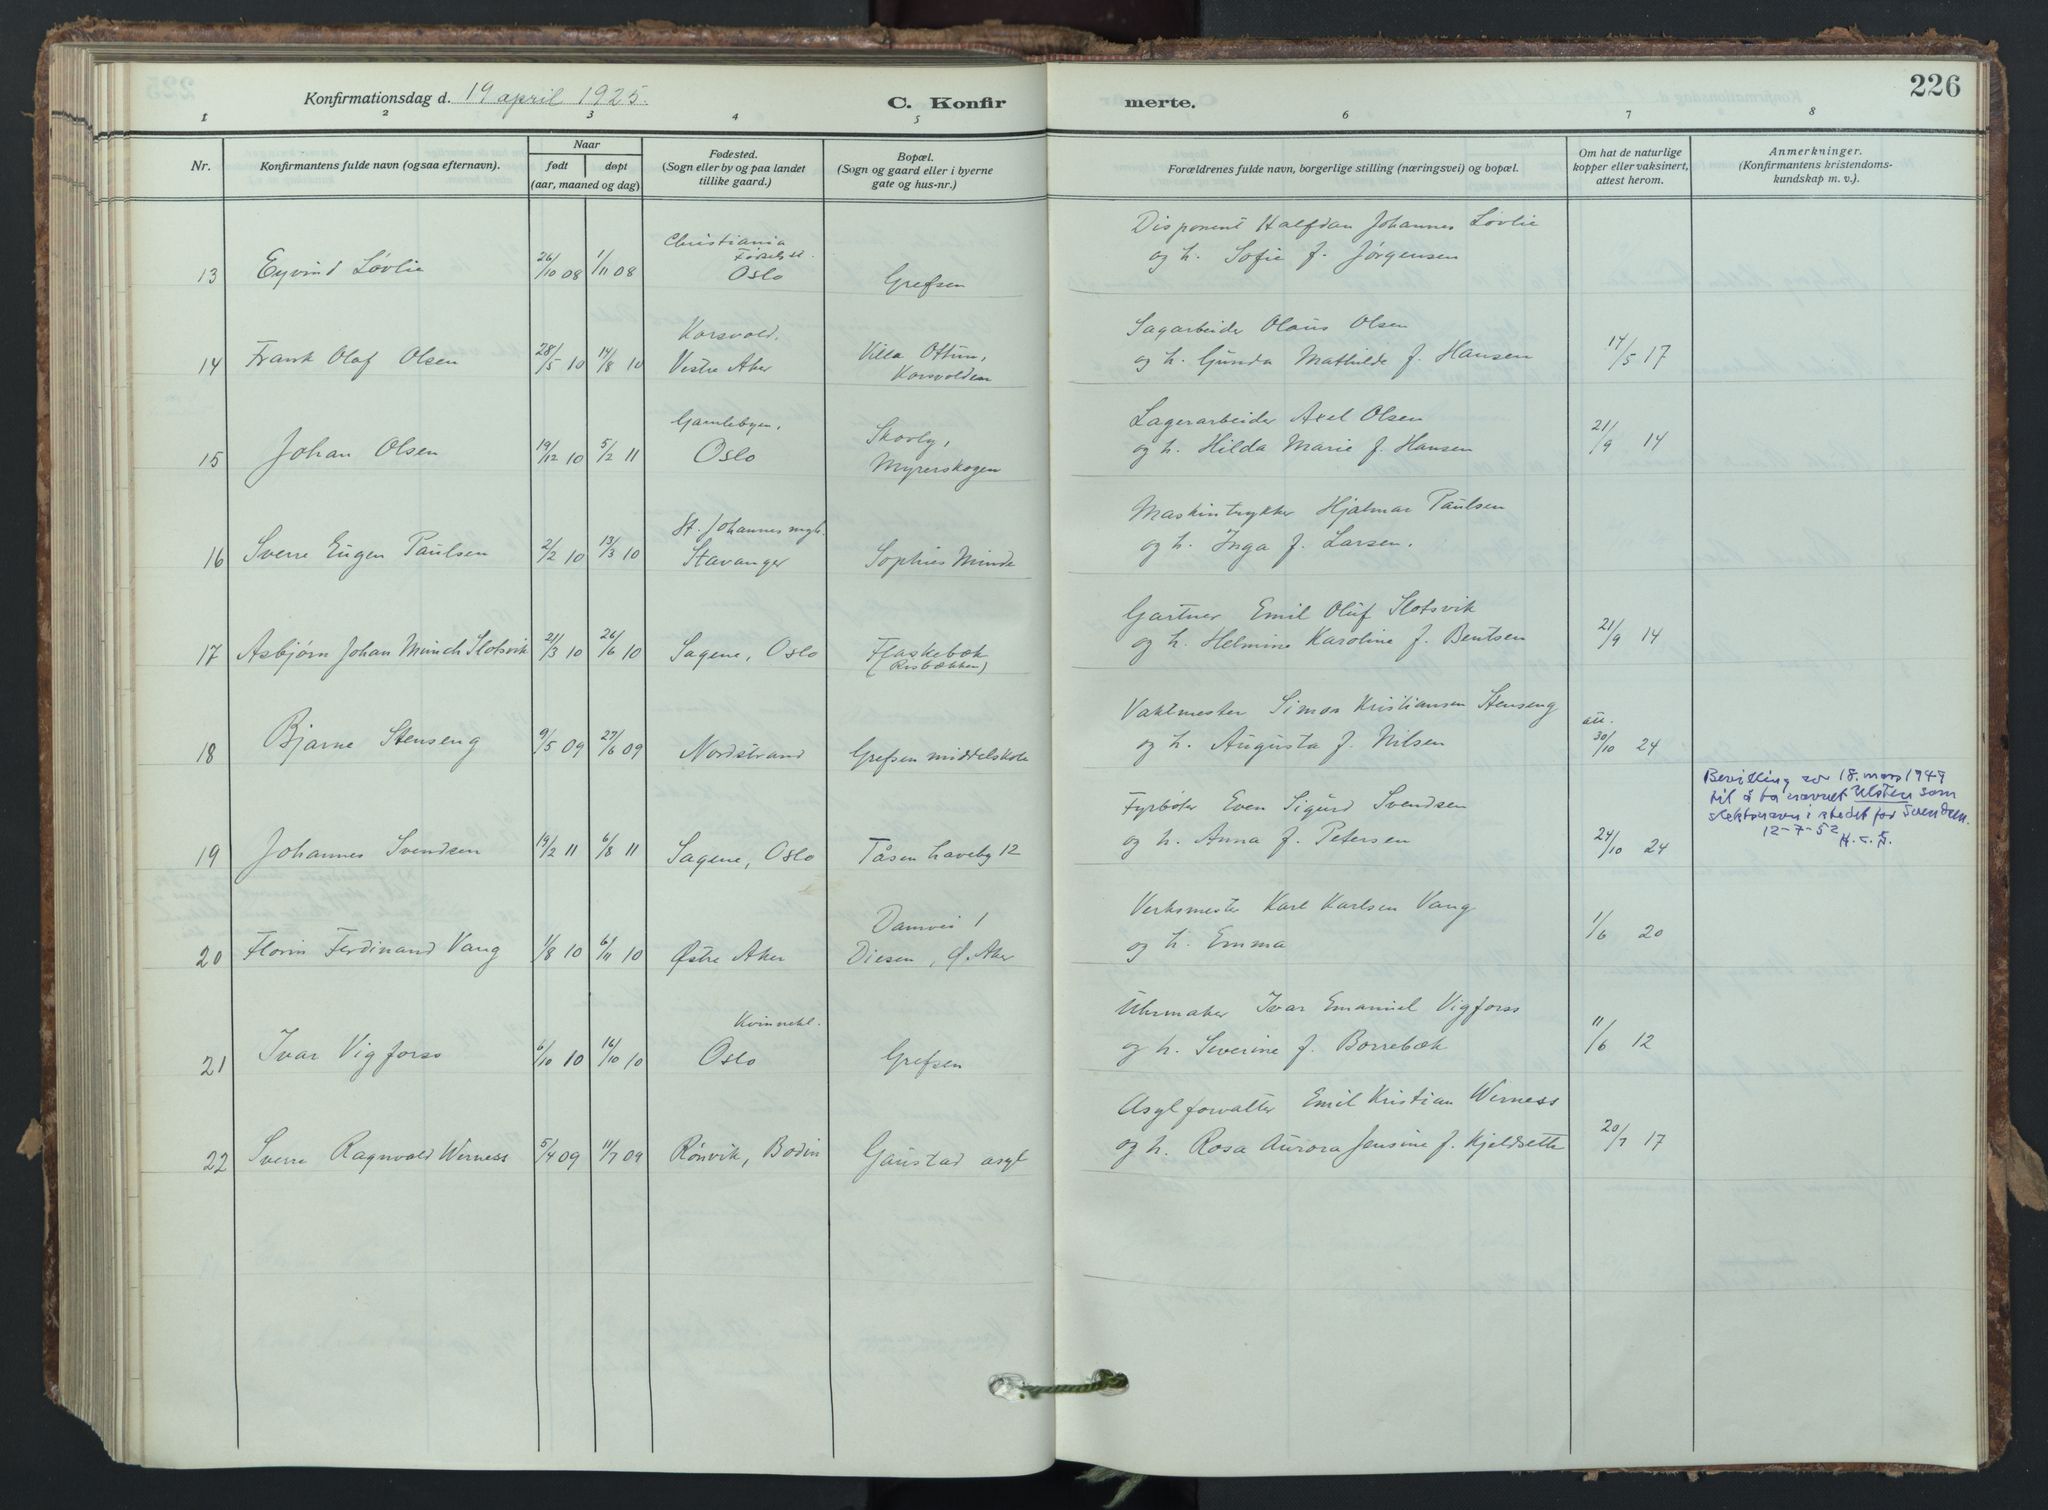 226
Konfirmationsdag d. 19 april 1925.
C. Konfirmerte.
1 2 3 4 5 6 7 8
Nr.
Konfirmantens fulde navn (ogsaa efternavn).
Naar
født
døpt
(aar, maaned og dag)
Fødested.
(Sogn eller by og paa landet
tillike gaard.)
Bopæl.
(Sogn og gaard eller i byerne
gate og hus-nr.)
Forældrenes fulde navn, borgerlige stilling (næringsvei) og bopæl.
Om hat de naturlige
kopper eller vaksinert,
attest herom.
Anmerkninger.
(Konfirmantens kristendoms-
kundskap m. v.).
Christiania
Fødselsst.
Disponent Halfdan Johannes Løvlie
13 Eyvind Løvlie 26/10 08 1/11 08 Oslo Grefsen og h. Sofie f. Jørgensen
Korsvold. Sagarbeider Olaus Olsen
14 Frank Olaf Olsen 28/5 10 14/8 10 Vestre Aker Villa Ottum, og h. Gunda Mathilde f. Hansen 14/5 17
Korsvolden
Gamlebyen, Skovly, Lagerarbeider Axel Olsen
15 Johan Olsen 19/12 10 5/2 11 Oslo Myrerskogen og h. Hilda Marie f. Hansen 21/9 14
St. Johannes mgh. Maskintrykker Hjalmar Paulsen
16 Sverre Eugen Paulsen 2/2 10 13/3 10 Stavanger Sophies Minde og h. Inga f. Larsen.
Gartner Emil Oluf Slotsvik
17 Asbjørn Johan Münch Slotsvik 21/3 10 26/6 10 Sagene, Oslo Flaskebæk og h. Helmine Karoline f. Bentsen 21/9 14
(Risbækken)
Vaktmester Simon Kristiansen Stenseng att.
18 Bjarne Stenseng 9/5 09 27/6 09 Nordstrand Grefsen middelskole og h. Augusta f. Nilsen 30/10 24
Fyrbøter Even Sigurd Svendsen
19 Johannes Svendsen 19/2 11 6/8 11 Sagene, Oslo Tåsen haveby 12 og h. Anna f. Petersen 24/10 24
Bevilling av 18. mars 1949
til å ta navnet Ulsten som
slektsnavn i stedet for Svendsen.
12-7-52 H.C.S.
Damvei 1 Verksmester Karl Karlsen Vang
20 Florin Ferdinand Vang 1/8 10 6/11 10 Østre Aker Disen, Ø. Aker og h. Emma 1/6 20
Kvinnekl. Uhrmaker Ivar Emanuel Vigforss
21 Ivar Vigforss 6/10 10 16/10 10 Oslo Grefsen og h. Severine f. Borrebæk 11/6 12
Asylforvalter Emil Kristian Werness
22 Sverre Ragnvald Werness 5/4 09 11/7 09 Rønvik, Bodin Gaustad asyl og h. Rosa Aurora Jensine f. Kjeldseth 20/7 17